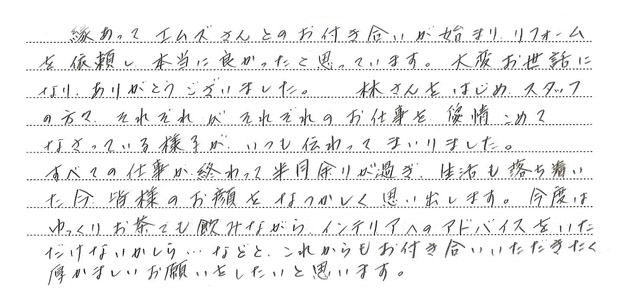 縁あって エムズさんとのお付き合いが始まり、リフォーム
を依頼し、本当に良かったと思っています。大変お世話に
なり、ありがとうございました。 林さんをはじめ、スタッフ
の方々、それぞれが それぞれのお仕事を 愛情こめて
なさっている様子が、いつも伝わってまいりました。
すべての仕事が終わって半月余りが過ぎ、生活も落ち着い
た今、皆様のお顔をなつかしく思い出します。今度は
ゆっくりお茶でも飲みながら、インテリアへのアドバイスをいた
だけないかしら…などと、これからもお付き合いいただきたく
厚かましいお願いをしたいと思います。